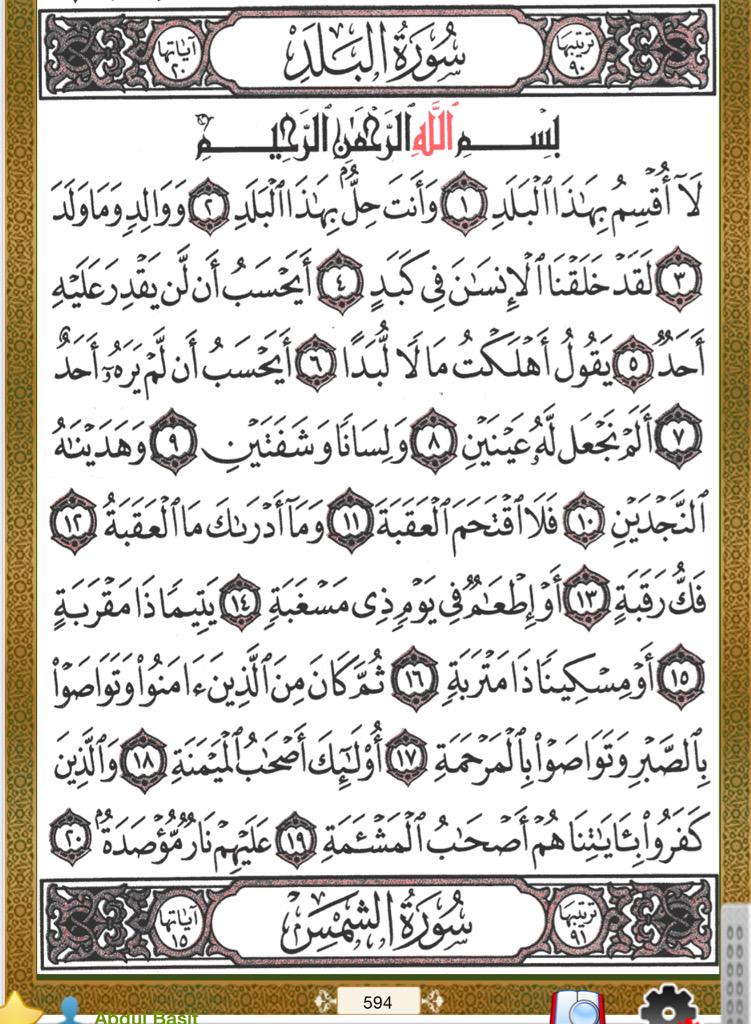 ترتيبها ٩٠ سُورَةُ الْبَلَدِ آياتها ٢٠
بِسْمِ اللَّهِ الرَّحْمَٰنِ الرَّحِيمِ
لَآ أُقْسِمُ بِهَٰذَا ٱلْبَلَدِ ١ وَأَنتَ حِلٌّۢ بِهَٰذَا ٱلْبَلَدِ ٢ وَوَالِدٍ وَمَا وَلَدَ
٣ لَقَدْ خَلَقْنَا ٱلْإِنسَٰنَ فِى كَبَدٍ ٤ أَيَحْسَبُ أَن لَّن يَقْدِرَ عَلَيْهِ
أَحَدٌ ٥ يَقُولُ أَهْلَكْتُ مَالًا لُّبَدًا ٦ أَيَحْسَبُ أَن لَّمْ يَرَهُۥٓ أَحَدٌ
٧ أَلَمْ نَجْعَل لَّهُۥ عَيْنَيْنِ ٨ وَلِسَانًا وَشَفَتَيْنِ ٩ وَهَدَيْنَٰهُ
ٱلنَّجْدَيْنِ ١٠ فَلَا ٱقْتَحَمَ ٱلْعَقَبَةَ ١١ وَمَآ أَدْرَىٰكَ مَا ٱلْعَقَبَةُ ١٢
فَكُّ رَقَبَةٍ ١٣ أَوْ إِطْعَٰمٌ فِى يَوْمٍ ذِى مَسْغَبَةٍ ١٤ يَتِيمًا ذَا مَقْرَبَةٍ
١٥ أَوْ مِسْكِينًا ذَا مَتْرَبَةٍ ١٦ ثُمَّ كَانَ مِنَ ٱلَّذِينَ ءَامَنُوا۟ وَتَوَاصَوْا۟
بِٱلصَّبْرِ وَتَوَاصَوْا۟ بِٱلْمَرْحَمَةِ ١٧ أُو۟لَٰٓئِكَ أَصْحَٰبُ ٱلْمَيْمَنَةِ ١٨ وَٱلَّذِينَ
كَفَرُوا۟ بِـَٔايَٰتِنَا هُمْ أَصْحَٰبُ ٱلْمَشْـَٔمَةِ ١٩ عَلَيْهِمْ نَارٌ مُّؤْصَدَةٌۢ ٢٠
ترتيبها ٩١ سُورَةُ الشَّمْسِ آياتها ١٥
594
Abdul Basit